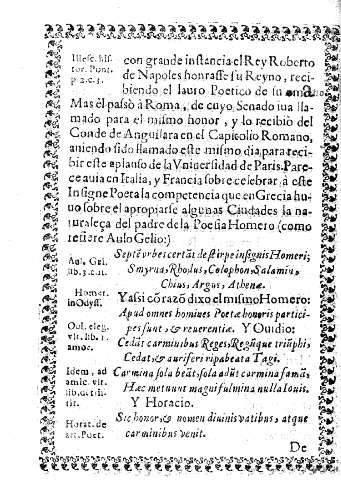 Illesc. hist
tor. Pont.
p. 2. c. 3.
con grande instancia el Rey Roberto
de Napoles honrasse su Reyno, reci-
biendo el lauro Poetico de su mano
Mas él passò à Roma, de cuyo Senado iua lla-
mado para el mismo honor, y lo recibiò del
Conde de Anguilara en el Capitolio Romano,
auiendo sido llamado este mismo dia para reci-
bir este aplauso de la Vniuersidad de Paris. Pare-
ce auia en Italia, y Francia sobre celebrar à este
Insigne Poeta la competencia que en Grecia hu-
uo sobre el apropiarse algunas Ciudades la na-
turaleça del padre de la Poesia Homero (como
refiere Aulo Gelio:)
Aul. Gel.
lib. 3. c. 11.
Septē vrbes certāt de stirpe insignis Homeri;
Smyrna, Rhodus, Colophon, Salamin,
Chius, Argus, Athenæ.
Homer.
in Odyss.
Y assi cō razō dixo el mismo Homero:
Apud omnes homines Poetæ honoris partici-
pes sunt, & reuerentiæ. Y Ouidio:
Oui. eleg.
vlt. lib. 1.
amoc.
Cedāt carminibus Reges, Regūque triūphi,
Cedat, & auriferi ripa beata Tagi.
Idem, ad
amic. vlt.
lib. de trist-
tit.
Carmina sola beāt, sola adūt carmina famā,
Hæc metuunt magni fulmina nulla Iouis.
Y Horacio.
Horat. de
art. Poet.
Sic honor, & nomen diuinis vatibus, atque
carminibus venit.
De